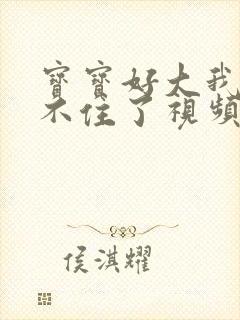 寶寶好大我
不住了視頻
侯淇耀